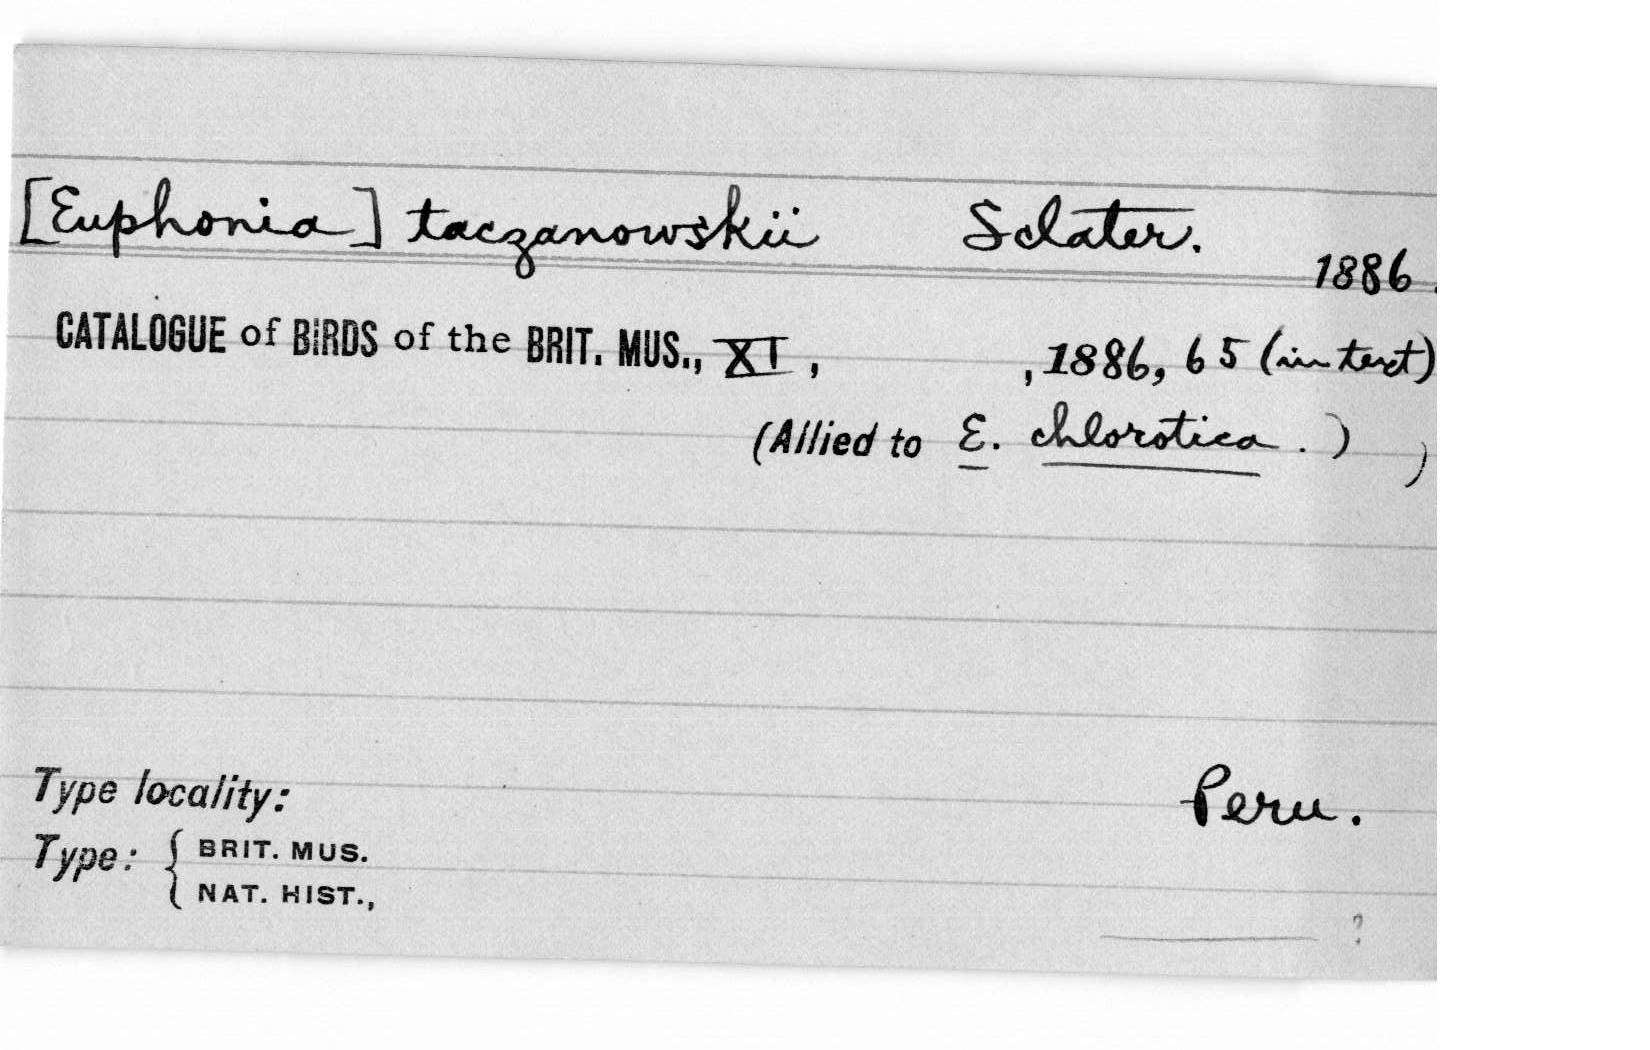 [Euphonia] taczanowskii Sclater.
1886.
CATALOGUE of BIRDS of the BRIT. MUS., XI, , 1886, 65 (in text)
(Allied to E. chlorotica.) )
Type locality: Peru.
Type: { BRIT. MUS.
NAT. HIST.,
?